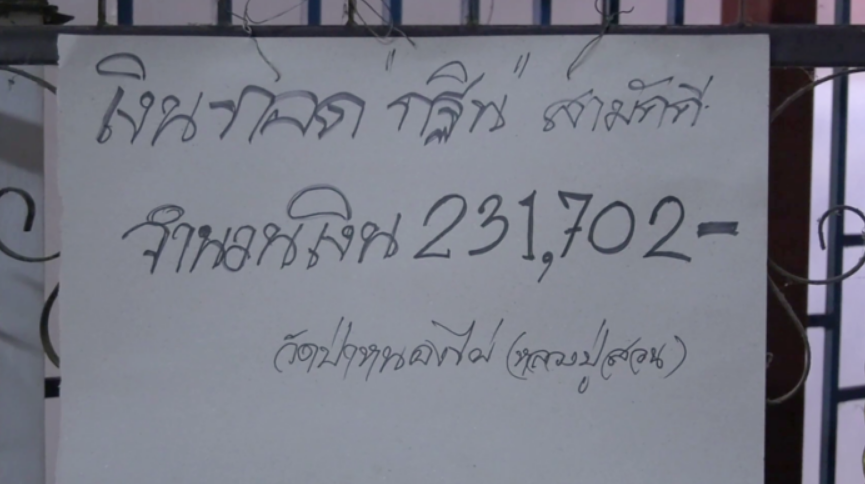 เงินทอด "กฐิน" สามัคคี
จำนวนเงิน 231,702-
วัดป่าหนองไผ่ (หลวงปู่สวน)